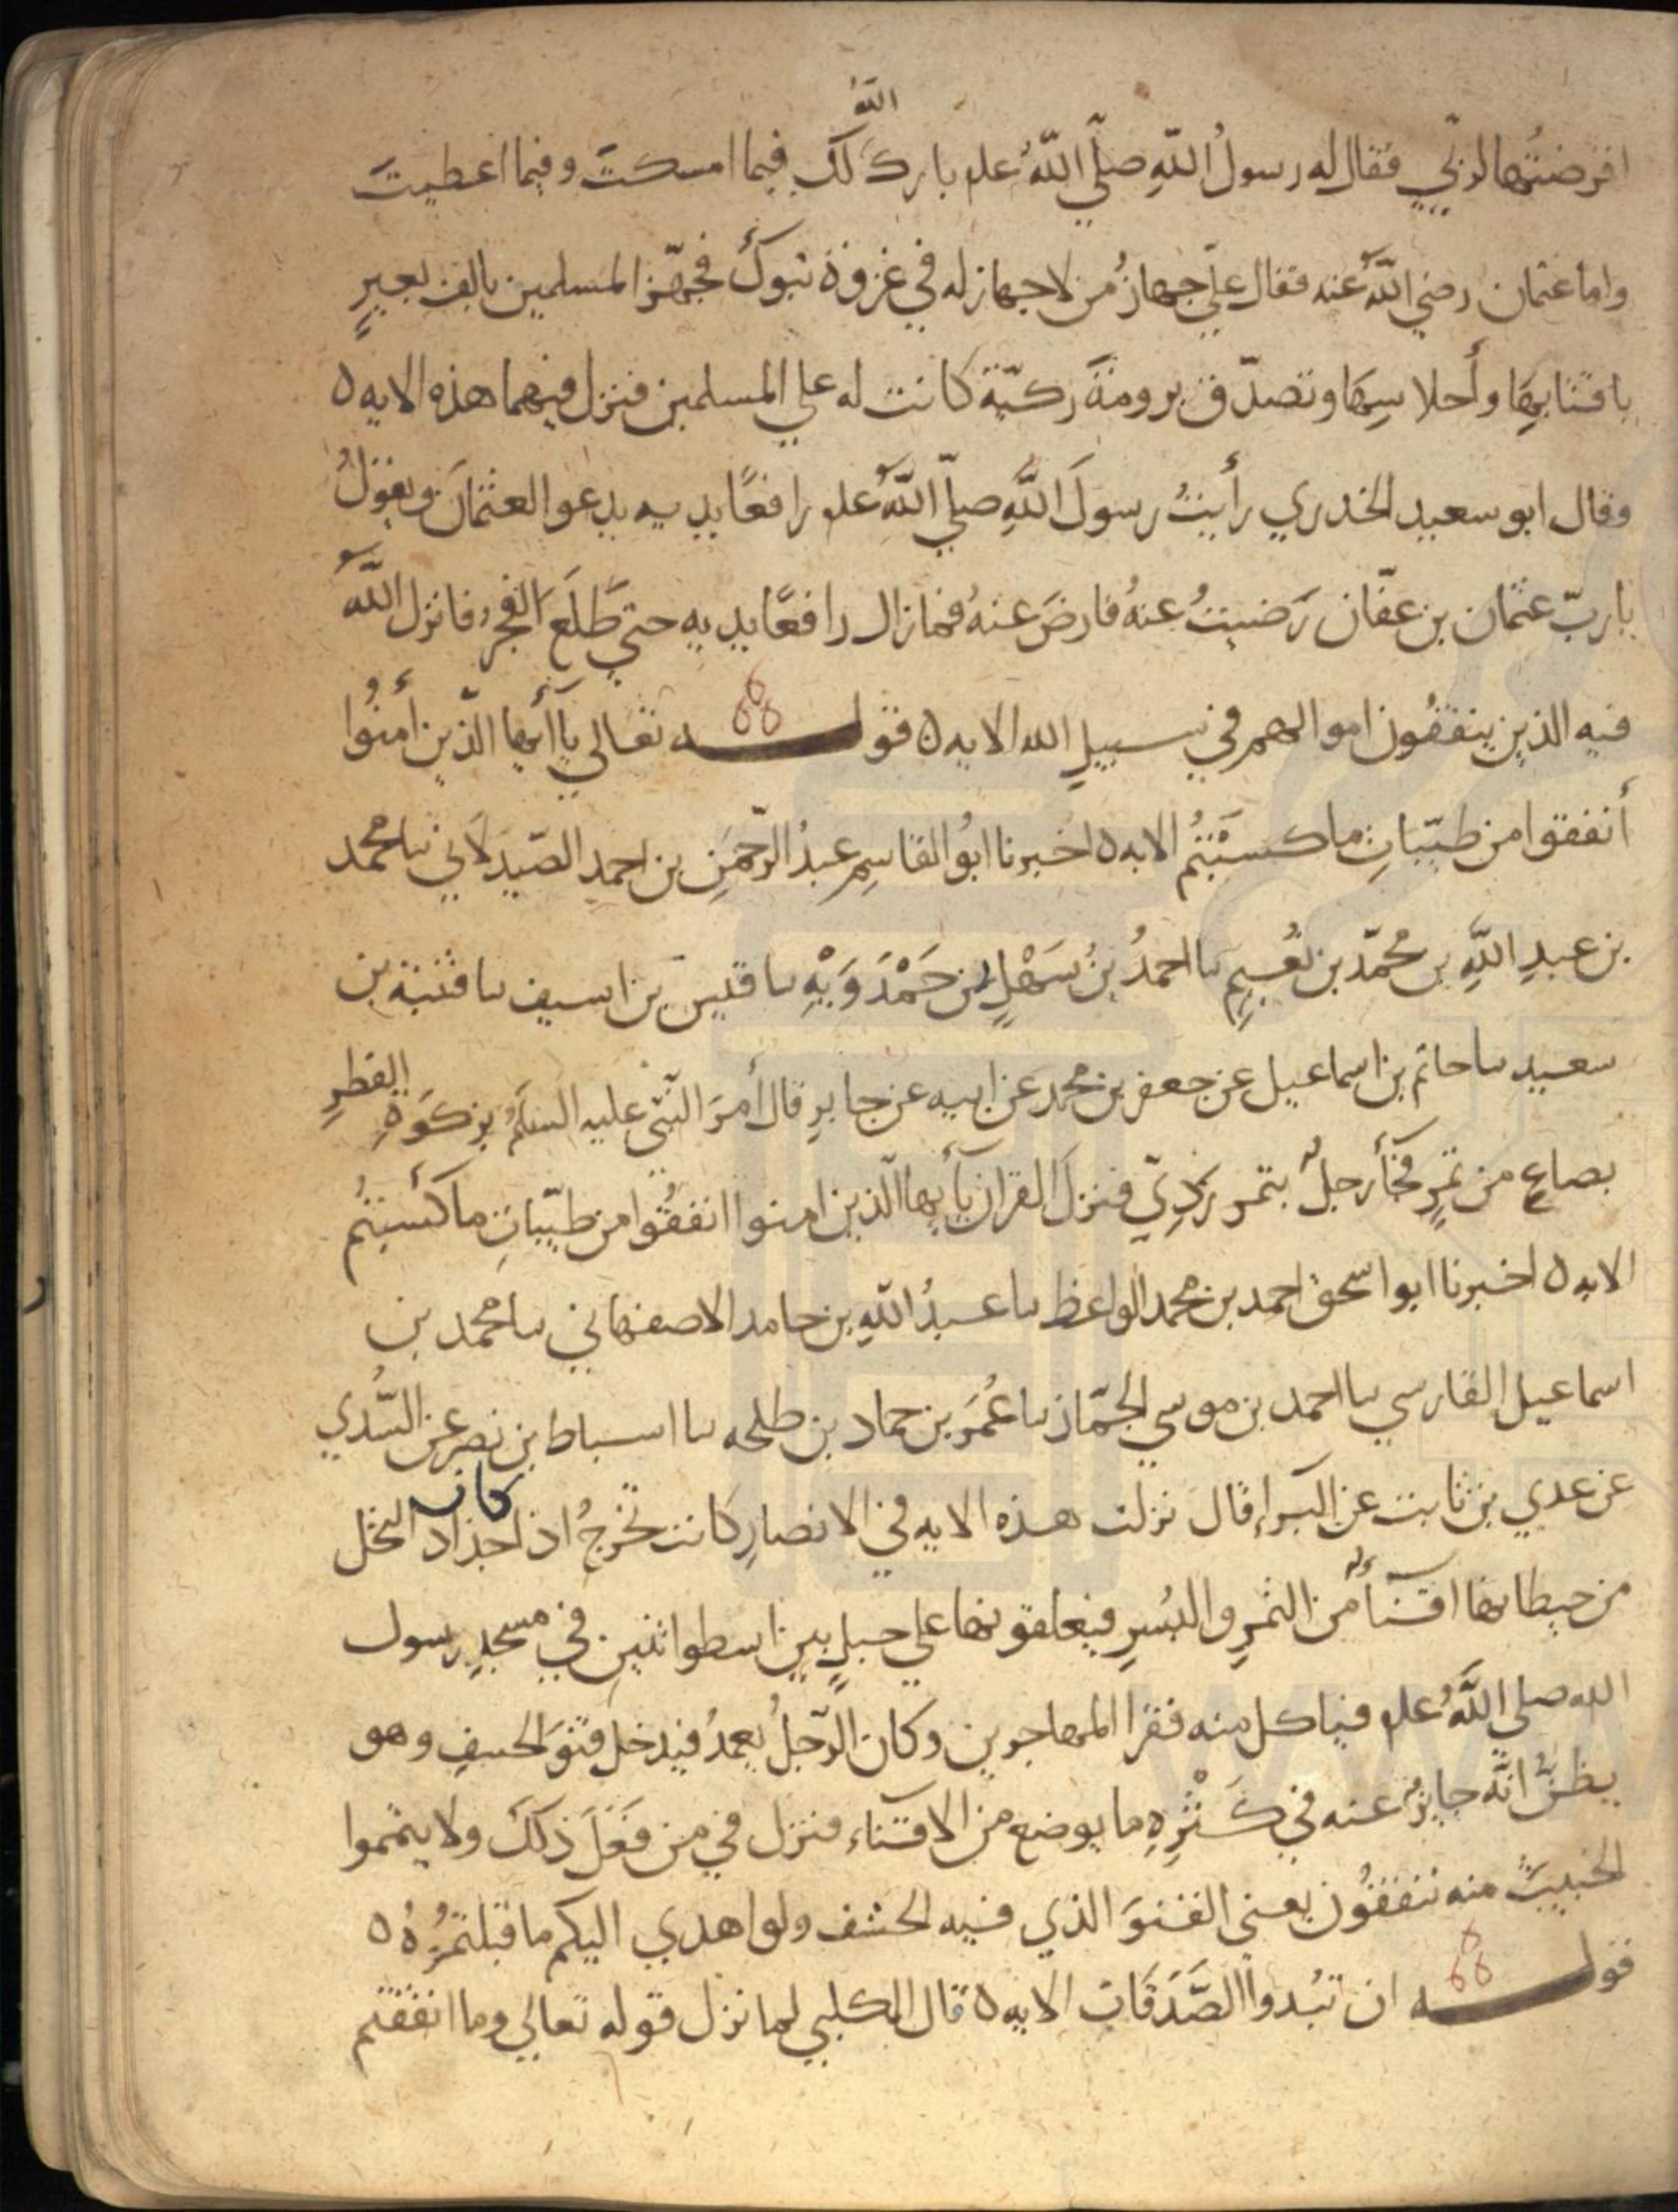 اقرضتُها لربّي فقال له رسولُ اللهِ صلّي اللهُ علم بارك اللهُ لكَ فيما امسكتَ وفيما اعطيتَ
واما عثمان رضي اللهُ عنه فقال عليّ جهازُ من لا جهاز له في غزوة تبوكَ فجهّز المسلمين بالف بعيرٍ
باقتابِها وأحلاسِها وتصدّق برومةَ رَكيّة كانت له علي المسلمين فنزل فيهما هذه الايه ٥
وقال ابو سعيد الخدري رأيتُ رسولَ اللهِ صلّي اللهُ علم رافعًا يديه يدعوا لعثمانَ ويقولُ
يا ربّ عثمان بن عفّان رَضيتُ عنهُ فارضَ عنهُ فما زال رافعًا يديه حتي طَلَعَ الفجرُ فانزل اللهُ
فيه الذين ينفقُون اموالهم في سبيلِ الله الايه ٥ قوله تعالي يا أيها الّذين أمنُوا
أنفقوا من طيّباتِ ما كسبْتُم الايه ٥ اخبرنا ابُو القاسِمِ عبدُ الرّحمنِ بن احمدِ الصّيدَلاني نا محمد
بن عبدِ اللهِ بن محمّد بن نُعيمِ نا احمدُ بنُ سَهْلِ بن حَمْدَوَيْهِ نا قيس بن اسيف نا قتيبة بن
سعيد نا حاتم بن اسماعيل عن جعفر بن محمد عن ابيه عن جابرِ قال أمرَ النّبيُ عليه السلمُ بزكوَةِ الفطرِ
بصاعٍ من تمرٍ فجأ رجلُ بتمر رَدِيّ فنزلَ القران يأيها الّذين امنوا انفقُوا من طيّباتِ ما كسبتُم
الايه ٥ اخبرنا ابو اسحق احمد بن محمد الواعظ نا عبدُ اللهِ بن حامد الاصفهاني نا محمد بن
اسماعيل الفارسي نا احمد بن موسي الجمّاز نا عُمَرَ بن حماد بن طلحه نا اسباط بن نصرٍ عن السُّدي
عن عدي بن ثابت عن البَراءِ قال نزلت هذه الايه في الانصارِ كانت تُخرجُ اذا كان جذاذ النخل
من حيطانها اقنأ من التمرِ والبُسرِ فيعلقونها علي حبلٍ بين اسطوانتين في مسجدِ رسول
الله صلي اللهُ علم فياكل منه فقرا المهاجرين وكان الرّجلُ يعمدُ فيدخل قنوَ الحشفِ وهو
يظنُّ انّه جايزُ عنه في كَثْرهِ ما يوضع من الاقناء فنزل في من فَعَلَ ذَلكَ ولا يتمموا
الخبيثَ منه تنفقُون يعني القنوَ الذي فيه الحشف ولو اهدي اليكم ما قبلتمُوهُ ٥
قوله ان تبُدوا الصَّدَقَات الايه ٥ قال الكلبي لما نزل قوله تعالي وما انفقتم